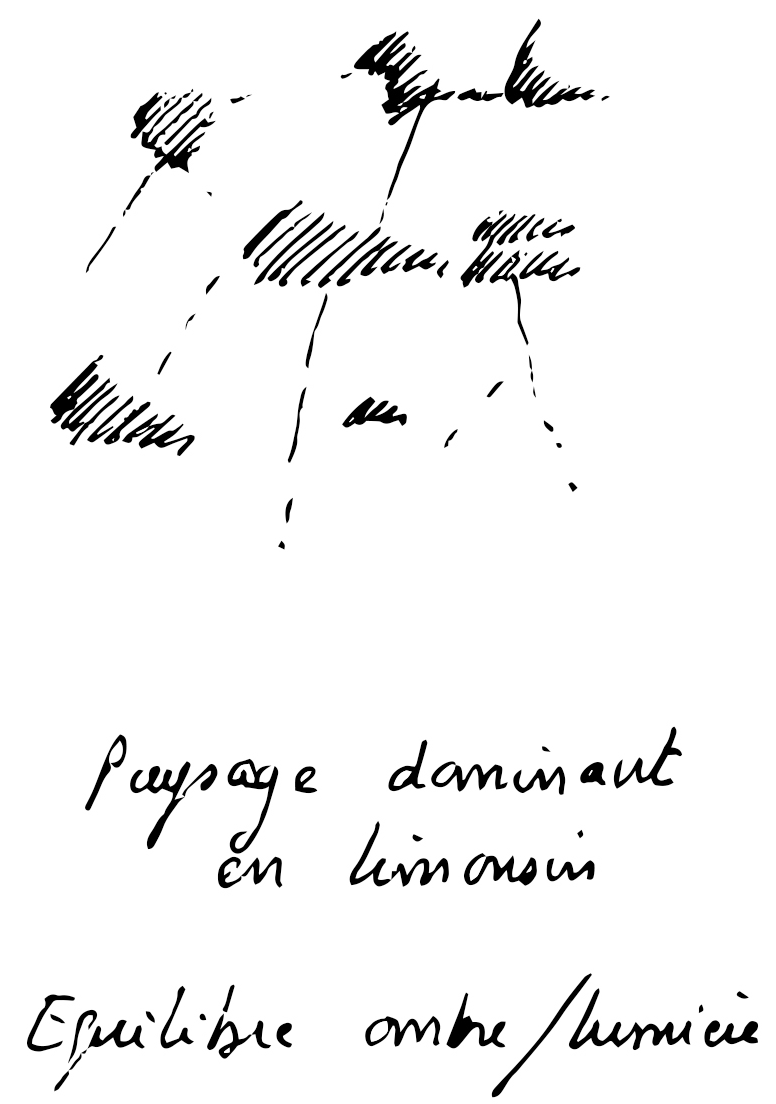 Paysage dominant
en limousin
Equilibre ombre/lumière